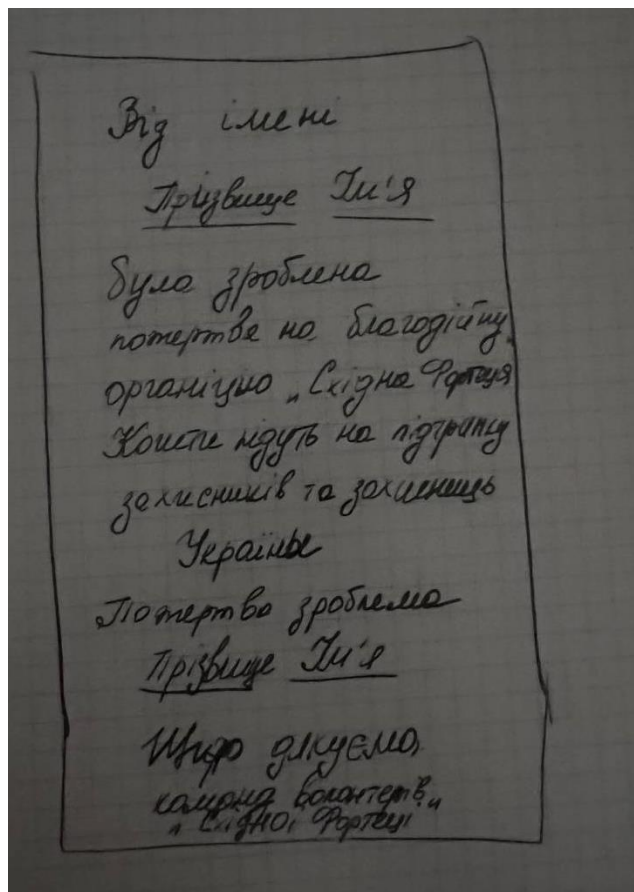 Від імені
Прізвище Ім'я
була зроблена
пожертва на благодійну
органіцію „Східна Фортеця
Кошти йдуть на підтримку
захисників та захисниць
України
Пожертва зроблена
Прізвище Ім'я
Щиро дякуємо,
команда волонтерів
„Східної Фортеці"